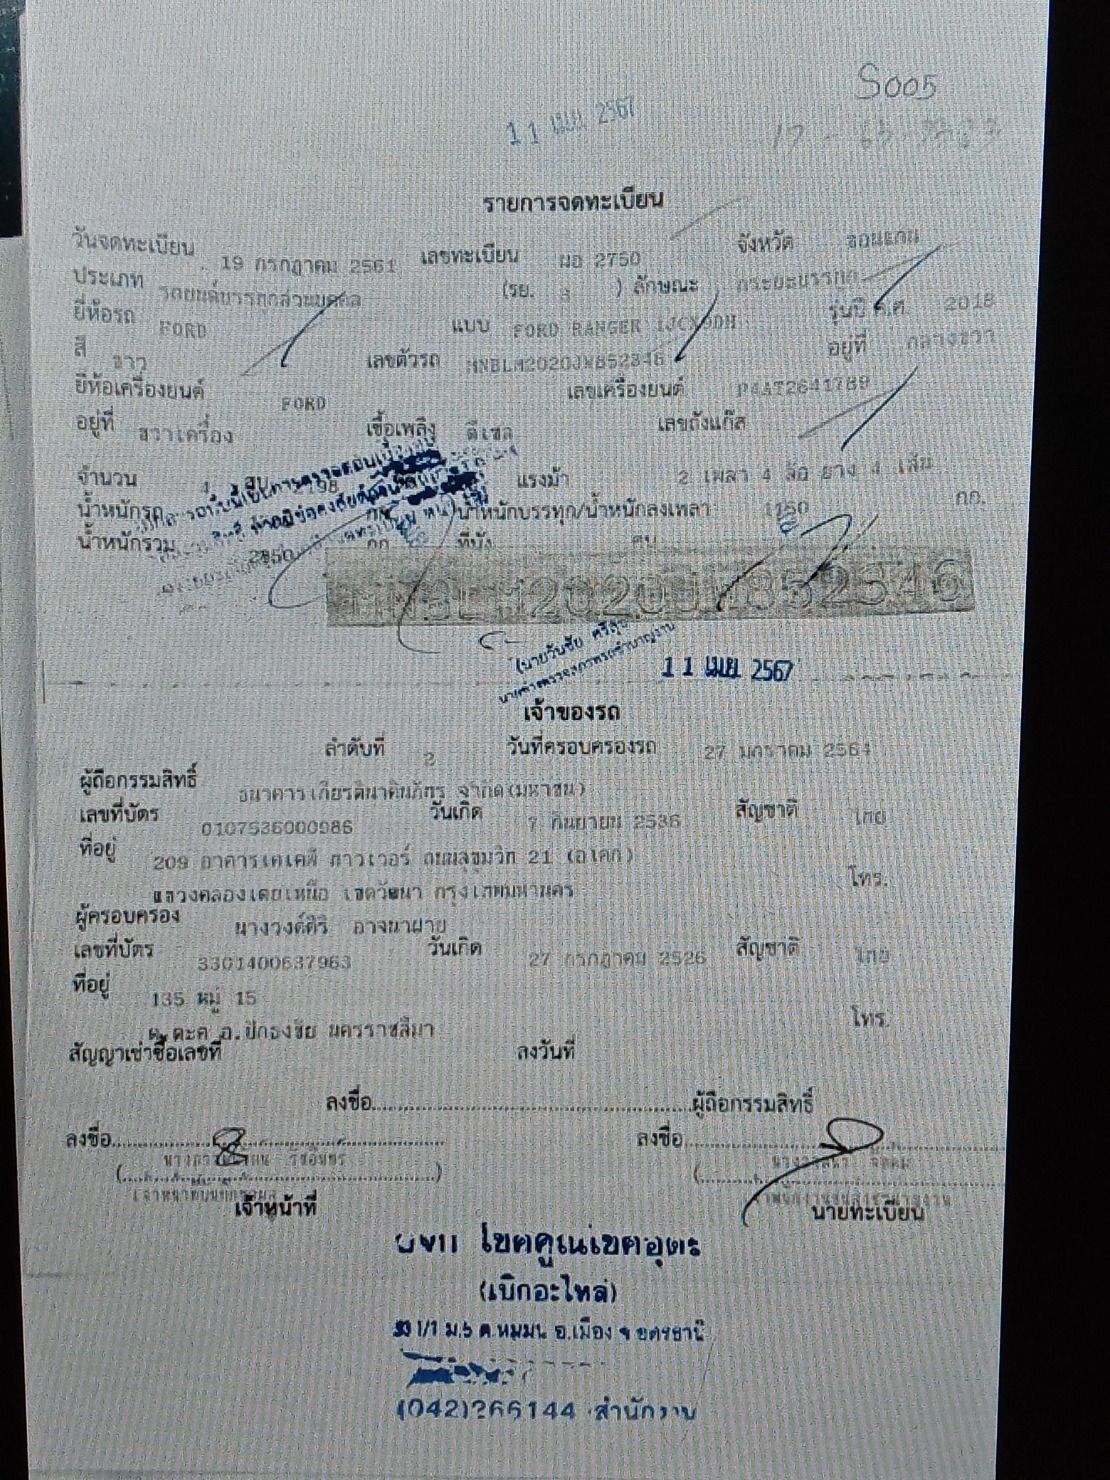 S005
11 เมย 2567
รายการจดทะเบียน
วันจดทะเบียน 19 กรกฎาคม 2561 เลขทะเบียน ผอ 2750 จังหวัด ขอนแก่น
ประเภท รถยนต์บรรทุกส่วนบุคคล (รย. 3 ) ลักษณะ กระบะบรรทุก
ยี่ห้อรถ FORD แบบ FORD RANGER 1JCX9DH รุ่นปี ค.ศ. 2018
สี ขาว เลขตัวรถ MNBLM2020JW852346 อยู่ที่ กลางขวา
ยี่ห้อเครื่องยนต์ FORD เลขเครื่องยนต์ P4AT2641789
อยู่ที่ ขวาเครื่อง เชื้อเพลิง ดีเซล เลขถังแก๊ส
จำนวน 4 สูบ 2198 แรงม้า 2 เพลา 4 ล้อ ยาง 4 เส้น
น้ำหนักรถ น้ำหนักบรรทุก/น้ำหนักลงเพลา 1150 กก.
น้ำหนักรวม 2850 กก ที่นั่ง คน
MNBLM2020JW852346
11 เมย 2567
เจ้าของรถ
ลำดับที่ 2 วันที่ครอบครองรถ 27 มกราคม 2564
ผู้ถือกรรมสิทธิ์ ธนาคารเกียรตินาคินภัทร จำกัด(มหาชน)
เลขที่บัตร 0107536000986 วันเกิด 7 กันยายน 2536 สัญชาติ ไทย
ที่อยู่ 209 อาคารเคเคพี ทาวเวอร์ ถนนสุขุมวิท 21 (อโศก)
แขวงคลองเตยเหนือ เขตวัฒนา กรุงเทพมหานคร โทร.
ผู้ครอบครอง นางวงค์ศิริ อาจนาฝาย
เลขที่บัตร 3301400637963 วันเกิด 27 กรกฎาคม 2526 สัญชาติ ไทย
ที่อยู่ 135 หมู่ 15 โทร.
ต.ตะคุ อ.ปักธงชัย นครราชสีมา
สัญญาเช่าซื้อเลขที่ ลงวันที่
ลงชื่อ ผู้ถือกรรมสิทธิ์
ลงชื่อ ลงชื่อ
เจ้าหน้าที่ นายทะเบียน
โชคคูณโชคอุดร
(เบิกอะไหล่)
1/1 ม.5 ต.หมูม่น อ.เมือง จ อุดรธานี
(042)266144 สำนักงาน